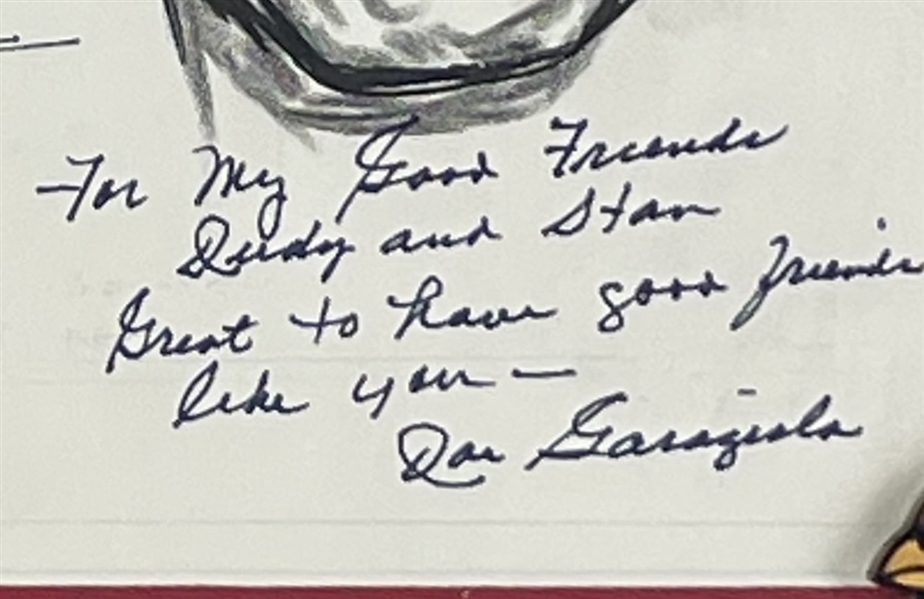 For My Good Friends
Judy and Stan
Great to have good friends
like you —
Joe Garagiola